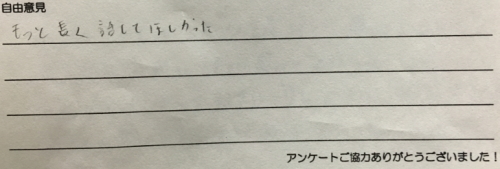 自由意見
もっと長く話してほしかった
アンケートご協力ありがとうございました！